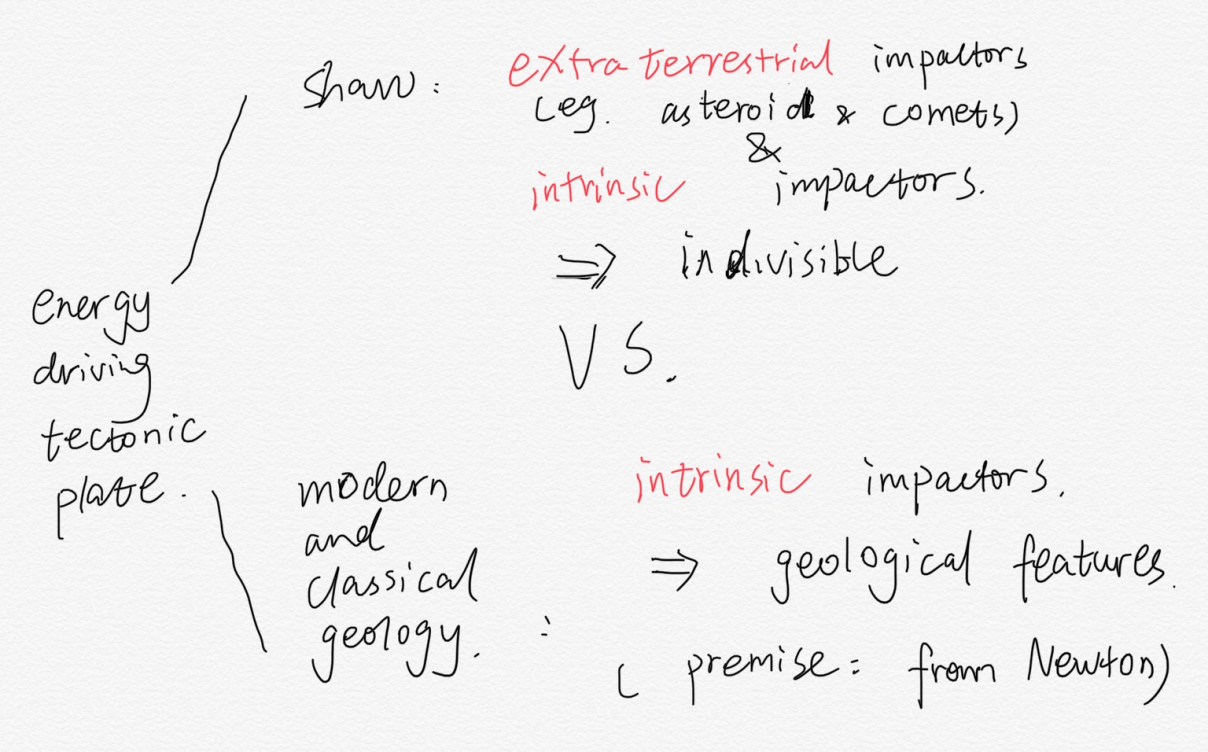 Shaw:
extraterrestrial impactors
(eg. asteroid & comets)
&
intrinsic impactors.
⇒ indivisible
VS.
energy
driving
tectonic
plate.
modern
and
classical
geology. :
intrinsic impactors.
⇒ geological features.
( premise: from Newton)